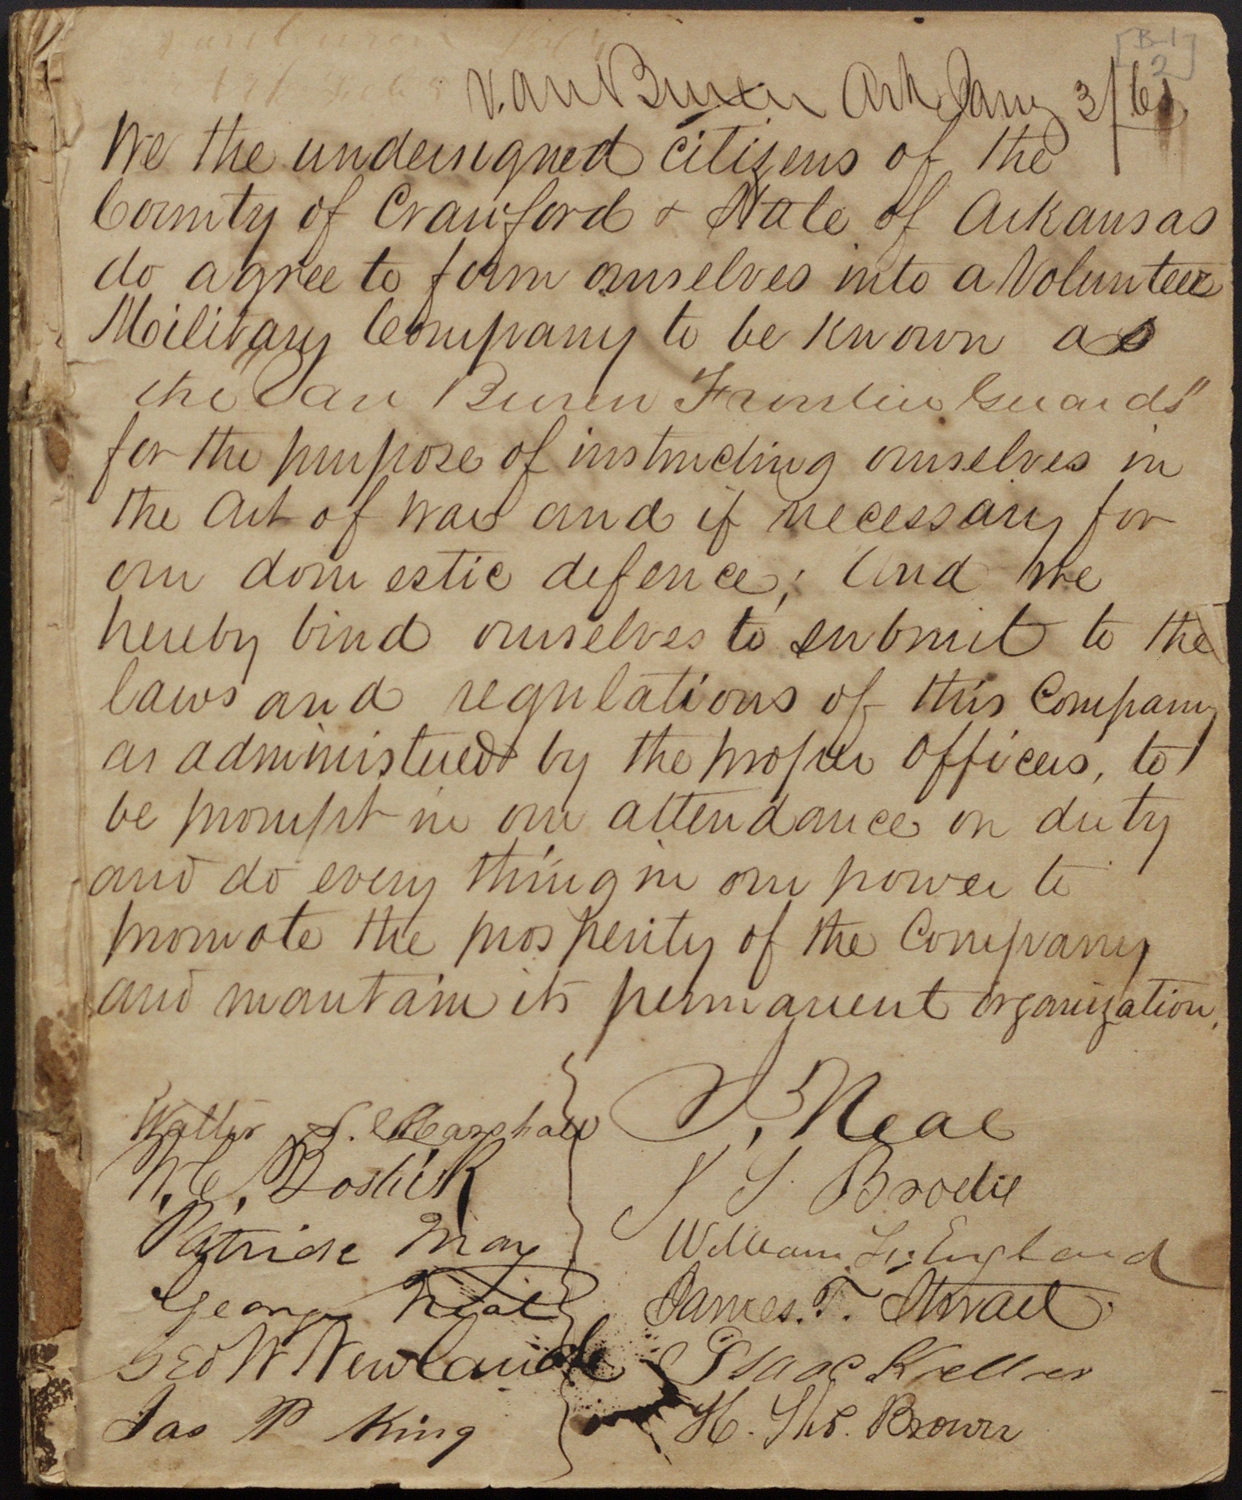 [B-1
2]
Van Buren Ark Jany 3/61
We the undersigned citizens of the
County of Crawford & State of Arkansas
do agree to form ourselves into a Volunteer
Military Company to be known as
the Van Buren "Frontier Guards"
for the purpose of instructing ourselves in
the Art of War and if necessary for
our domestic defence; And we
hereby bind ourselves to submit to the
laws and regulations of this Company
as administered by the proper Officers, to
be prompt in our attendance on duty
and do every thing in our power to
promote the prosperity of the Company
and maintain its permanent organization.
Walter S. Marshall
N. C. Bostick
Patrick May
George Neal
Geo W Newlande
Jas P King
J. Neal
J S Brodie
William L. England
James. T. Stewart
Isaac Keller
H. Ths. Brown